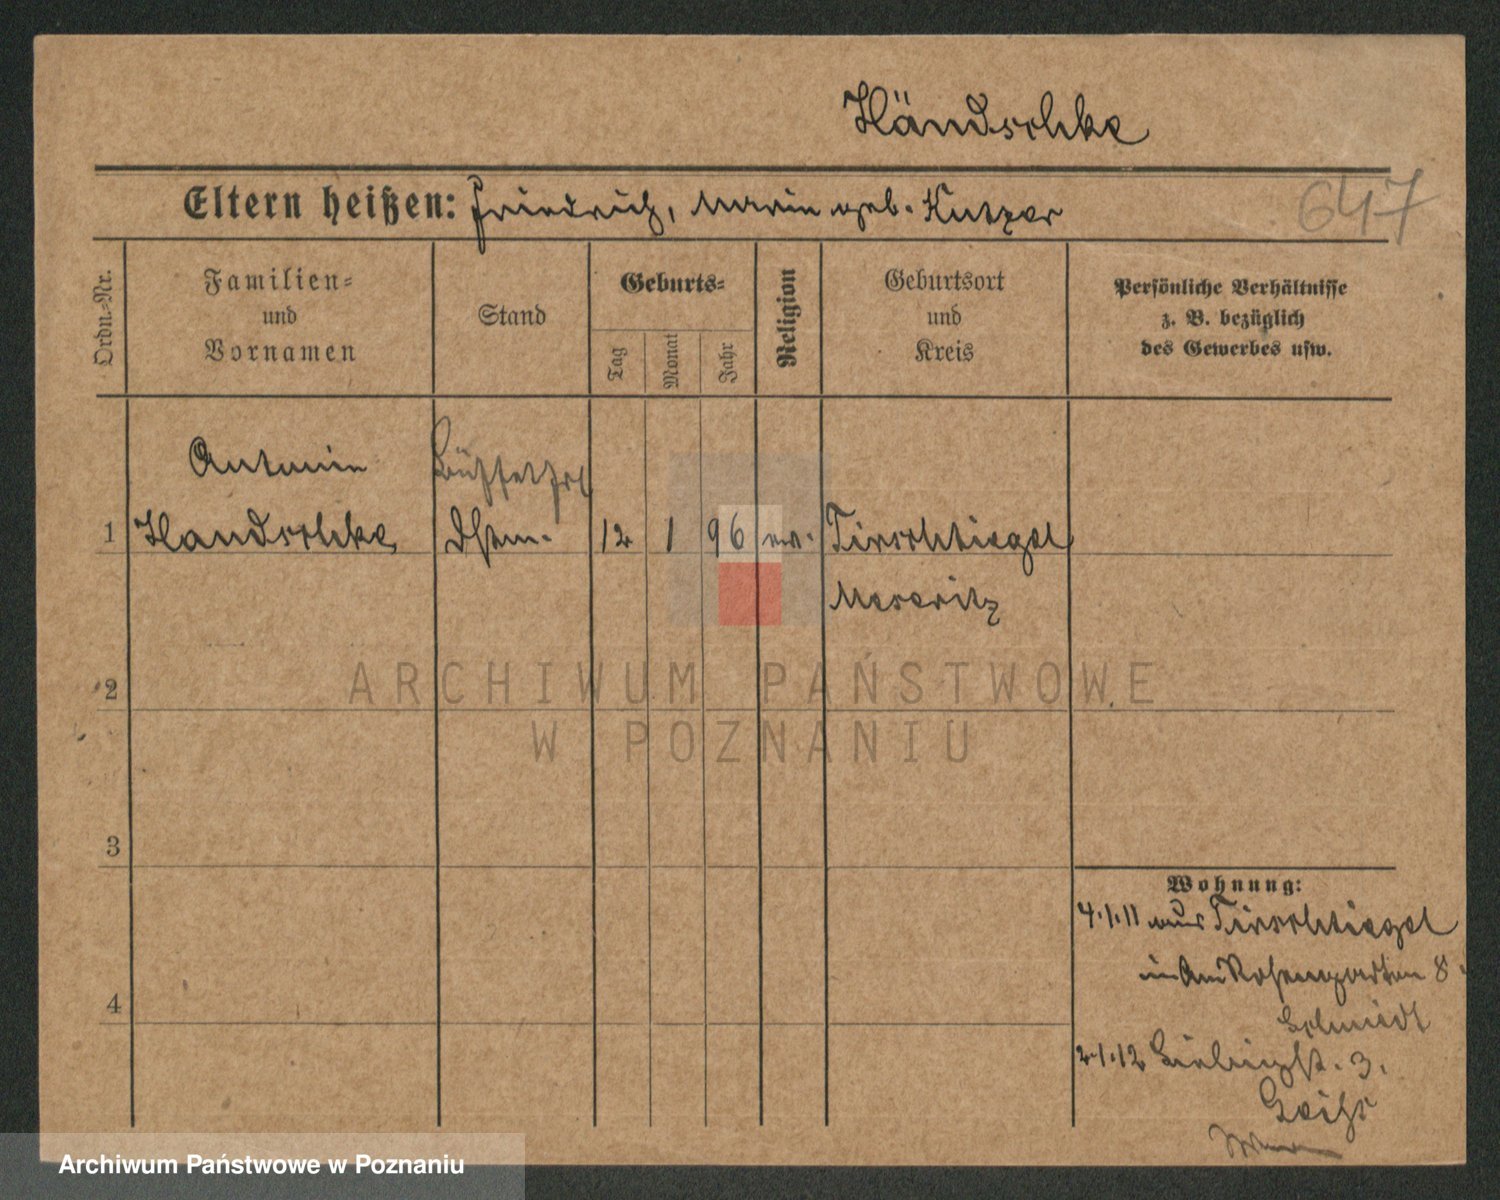 Händschke
Eltern heißen: Friedrich, Marie geb. Kutzer
647
Ordn.-Nr.
Familien-
und
Vornamen
Stand
Geburts-
Tag
Monat
Jahr
Religion
Geburtsort
und
Kreis
Persönliche Verhältnisse
z. B. bezüglich
des Gewerbes usw.
Antonie
1 Handschke Dstm. 12 1 96 ev. Tirschtiegel
Meseritz
2
3
4
Wohnung:
4.1.11 aus Tirschtiegel
in Am Rosengarten 8
Schmidt
2.1.12 Liebigst. 3.
ARCHIWUM PAŃSTWOWE
W POZNANIU
Archiwum Państwowe w Poznaniu